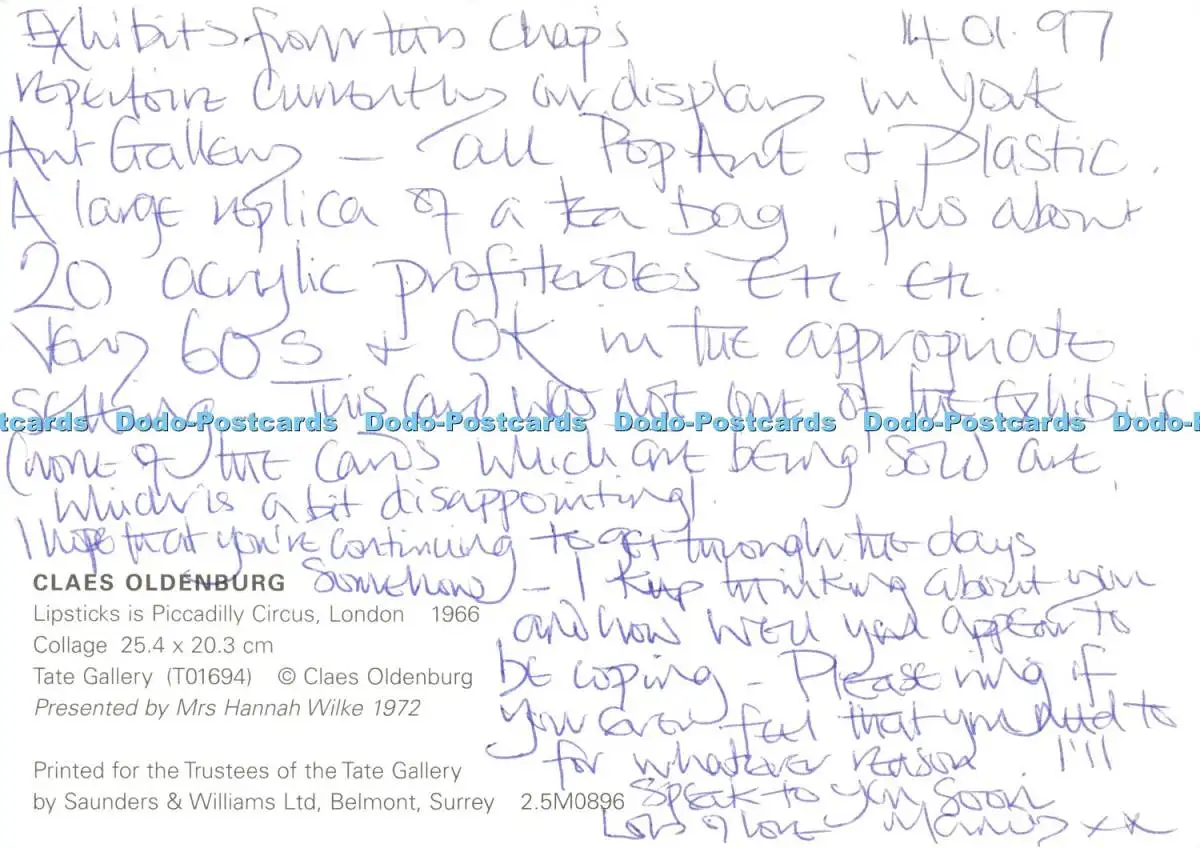 Exhibits from this Chap's 14.01.97
repertoire currently on display in York
Art Gallery – all Pop Art + Plastic.
A large replica of a tea bag, plus about
20 acrylic profiteroles etc. etc.
Very 60s + OK in the appropriate
setting. This card was not one of the exhibits
(none of the cards which are being sold are,
which is a bit disappointing).
I hope that you're continuing to get through the days
somehow – I keep thinking about you
and how well you appear to
be coping – Please ring if
you ever feel that you need to
for whatever reason. I'll
speak to you soon
Lots of love xx
CLAES OLDENBURG
Lipsticks is Piccadilly Circus, London 1966
Collage 25.4 x 20.3 cm
Tate Gallery (T01694) © Claes Oldenburg
Presented by Mrs Hannah Wilke 1972
Printed for the Trustees of the Tate Gallery
by Saunders & Williams Ltd, Belmont, Surrey 2.5M0896
tcards Dodo-Postcards Dodo-Postcards Dodo-Postcards Dodo-Postcards Dodo-P